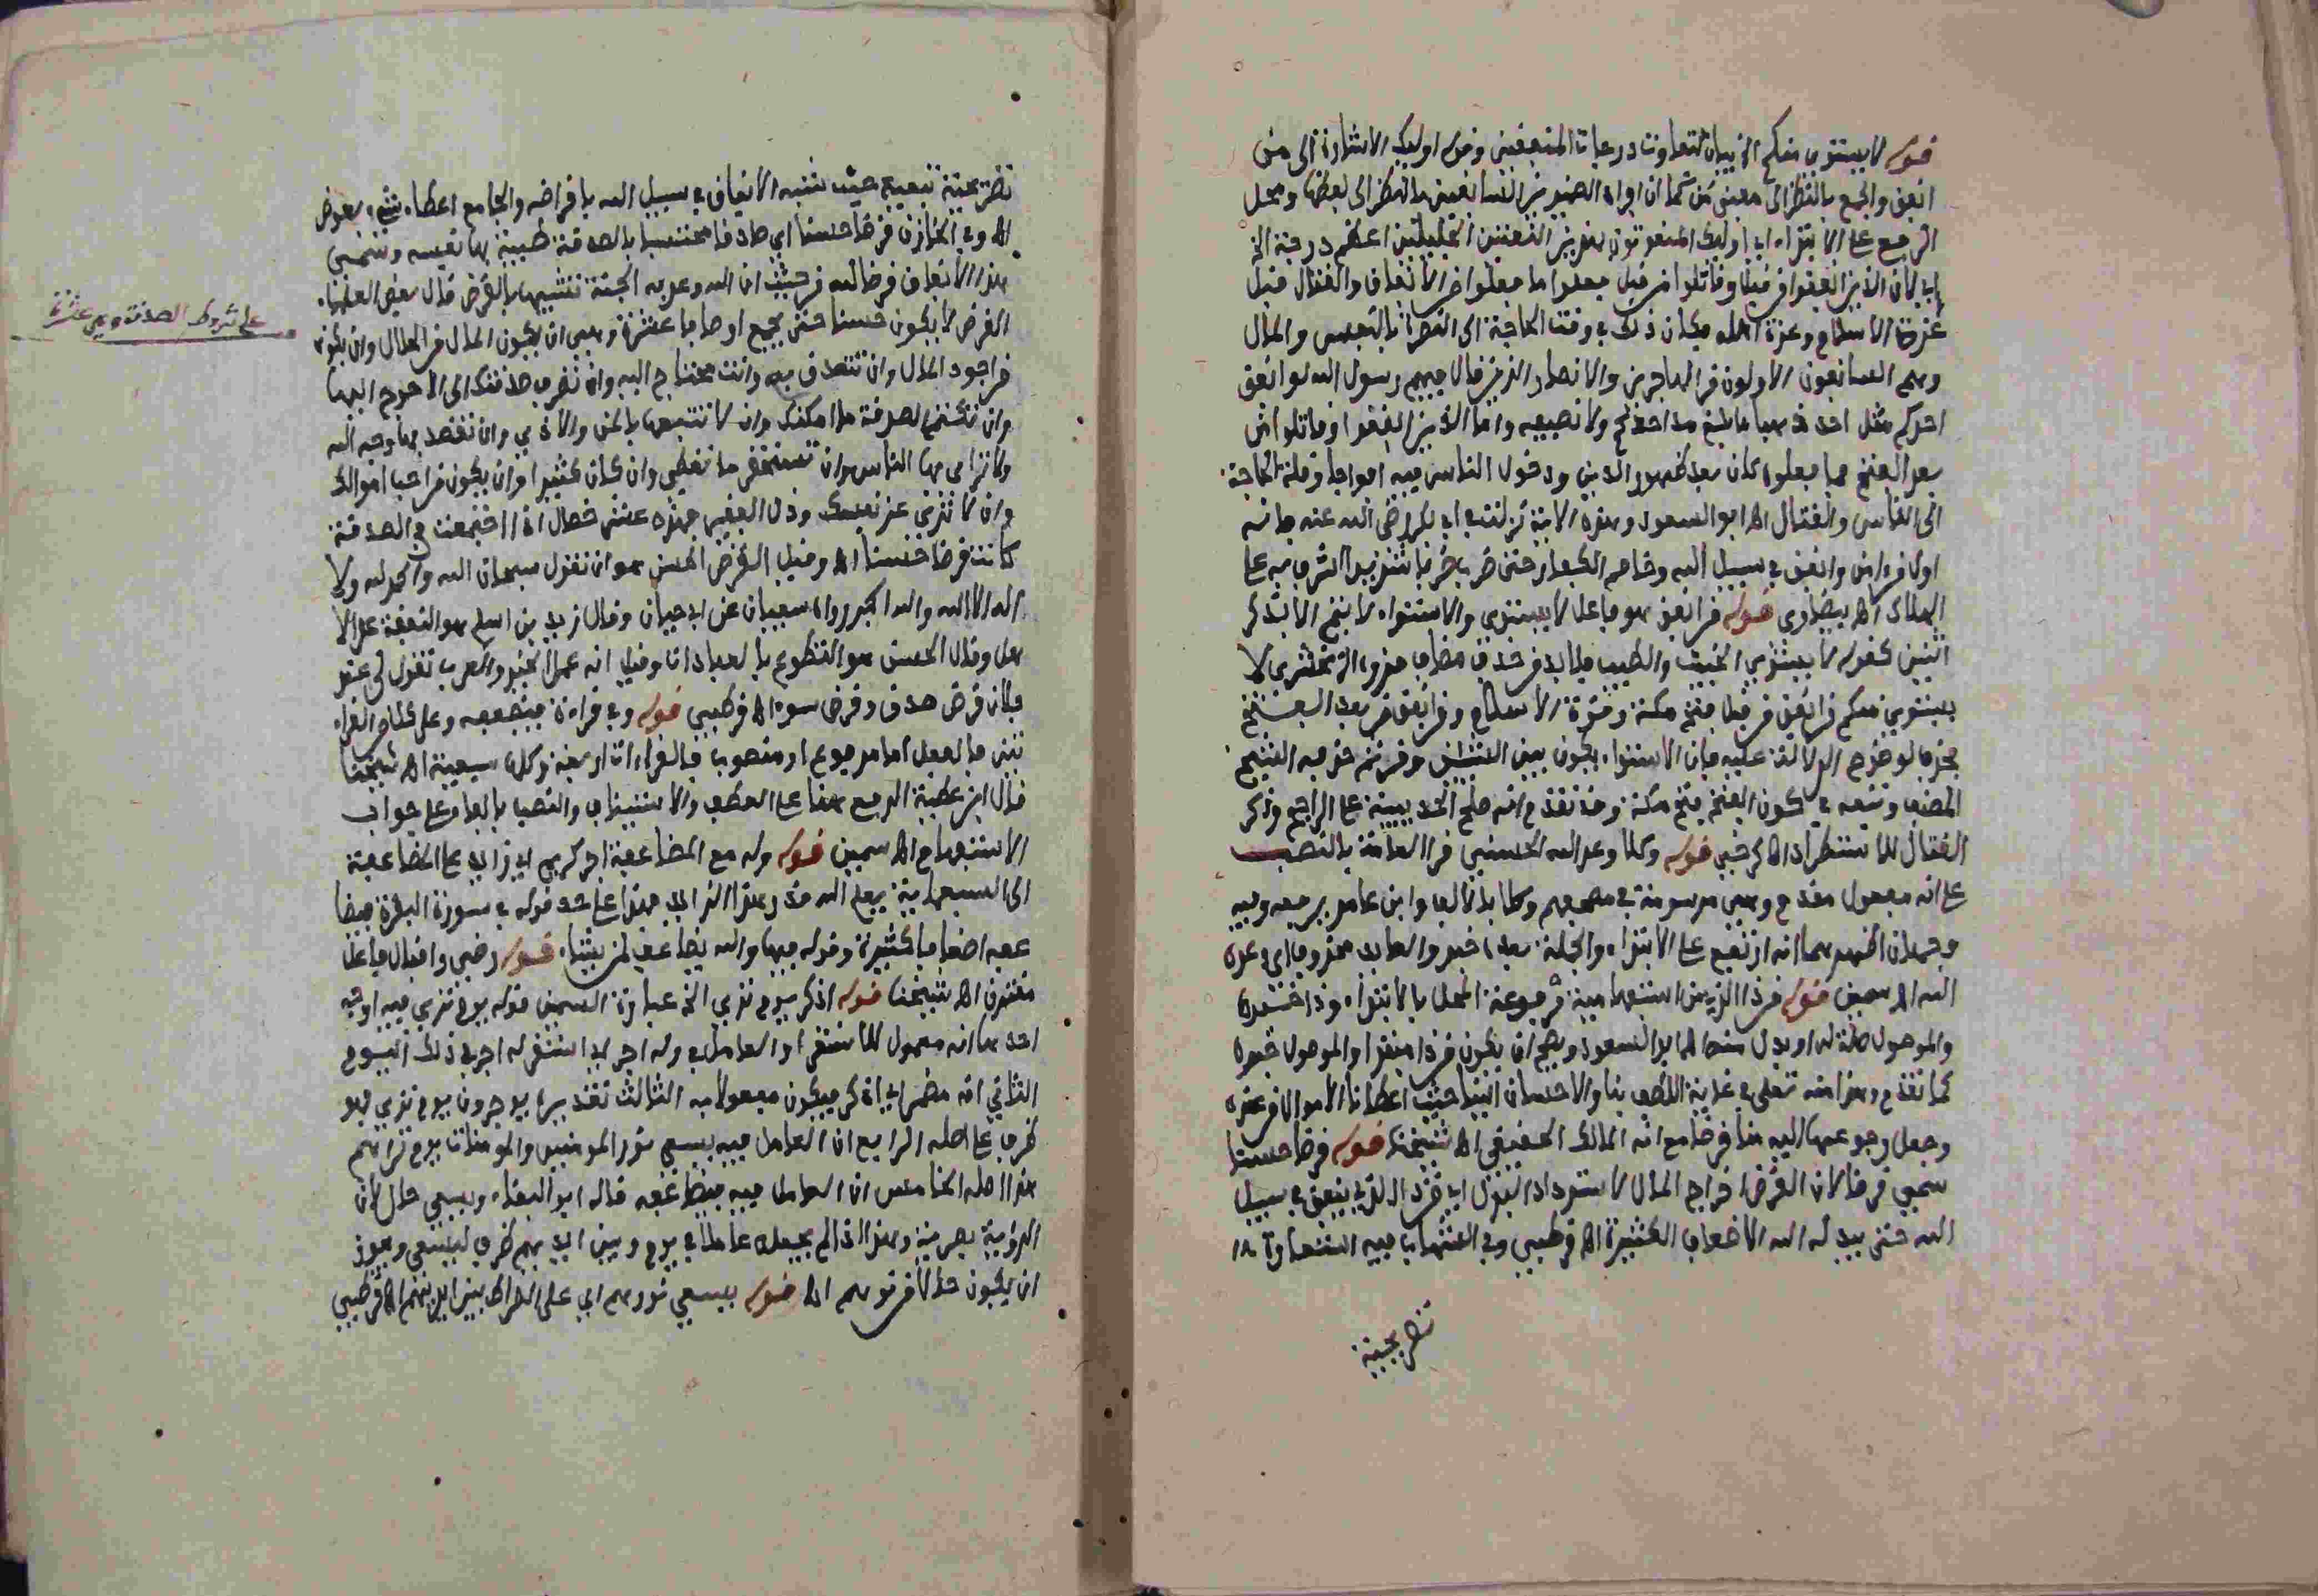 قوله لا يستوي منكم الخ بيان لتفاوت درجات المنفقين وقوله اوليك الاشارة الى من
انفق والجمع بالنظر الى معنى من كما ان افراد الضميرين السابقين بالنظر الى لفظها ومحل
الرفع على الابتداء اي اوليك المنعوتون بهذين النعتين الجليلين اعظم درجة الخ
اي لان الذين انفقوا من قبل وقاتلوا من قبل فعلوا ما فعلوا من الانفاق والقتال قبل
عزة الاسلام وعزة اهله فكان ذلك في وقت الحاجة الى النصرة بالنفس والمال
وهم السابقون الاولون من المهاجرين والانصار الذين قال فيهم رسول الله لو انفق
احدكم مثل احد ذهبا ما بلغ مد احدهم ولا نصيفه واما الذين انفقوا وقاتلوا من
بعد الفتح فما فعلوه كان بعد ظهور الدين ودخول الناس فيه افواجا وقلة الحاجة
الى الناس والقتال اه ابو السعود وهذه الاية نزلت في ابي بكر رضي الله عنه فانه
اول من امن وانفق في سبيل الله وخاصم الكفار حتى ضرب ضربا شديدا اشرف به على
الهلاك اه بيضاوي قوله من انفق هو فاعل لا يستوي والاستواء لا يتم الا بذكر
اثنين كقوله لا يستوي الخبيث والطيب فلا بد من حذف مضاف قدره الزمخشري لا
يستوي منكم من انفق من قبل فتح مكة وقوة الاسلام ومن انفق من بعد الفتح
فحذف لوضوح الدلالة عليه فان الاستواء يكون بين الشيئين وقد تم حذف القسيم
المصنف وتبعه في كون الفتح فتح مكة وقد تقدم انه صلح الحديبية على الراجح وذكر
القتال للاستطراد اه كرخي قوله وكلا وعد الله الحسنى قرا العامة بالنصب
على انه مفعول مقدم وهي مرسومة في مصحفهم وكلا بالالف وابن عامر برفعه وفيه
وجهان اظهرهما انه ارتفع على الابتداء والجملة بعده خبر والعايد محذوف اي وعده
الله اه سمين قوله من ذا الذي من استفهامية مرفوعة المحل بالابتداء وذا خبره
والموصول صلة له او بدل منه اه ابو السعود ويصح ان يكون من ذا مبتدا والموصول خبره
كما تقدم وهذا منه تعالى في غاية اللطف بنا والاحسان الينا حيث اعطانا الاموال من عنده
وجعل رجوعها اليه منا قرضا مع انه المالك الحقيقي اه شيخنا قوله قرضا حسنا
سمي قرضا لان القرض اخراج المال لاسترداد البدل اي من ذا الذي ينفق في سبيل
الله حتى يبدله الله الاضعاف الكثيرة اه قرطبي وفي الشهاب فيه استعارة
تصريحية
تصريحية تبعية حيث شبه الانفاق في سبيل الله باقراضه والجامع اعطاء شيء بعوض
اه وفي الخازن قرضا حسنا اي صادقا محتسبا بالصدقة طيبة بها نفسه وسمي
هذا الانفاق قرضا لله من حيث ان الله وعد به الجنة تشبيها بالقرض قال بعض العلماء
القرض لا يكون حسنا حتى يجمع اوصافا عشرة وهي ان يكون المال من الحلال وان يكون
من اجود المال وان تتصدق به وانت محتاج اليه وان تصرف صدقتك الى الاحوج اليها
وان تكتم الصدقة ما امكنك وان لا تتبعها بالمن والاذى وان تقصد بها وجه الله
ولا ترائي بها الناس وان تستحقر ما تعطي وان كان كثيرا وان يكون من احب اموالك
وان لا ترى عز نفسك وذل الفقير فهذه عشر خصال اذا اجتمعت في الصدقة
كانت قرضا حسنا اه وقيل القرض الحسن هو ان تقول سبحان الله والحمد لله ولا
اله الا الله والله اكبر رواه سفيان عن ابي حيان وقال زيد بن اسلم هو النفقة على الا
هل وقال الحسن هو التطوع بالعبادات وقيل انه عمل الخير والعرب تقول لي عند
فلان قرض صدق وقرض سوء اه قرطبي قوله وفي قراءة فيضعفه وعلى كلام القراء
تين فالفعل اما مرفوع او منصوب فالقراءات اربعة وكلها سبعية اه شيخنا
قال ابن عطية الرفع هنا على العطف والاستيناف والنصب بالفاء على جواب
الاستفهام اه سمين قوله وله مع المضاعفة اجر كريم اي زايد على المضاعفة
الى السبعماية يعلم الله قدر هذا الزايد فهذا على حد قوله في سورة البقرة فيضا
عفه اضعافا كثيرة وقوله فيها والله يضاعف لمن يشاء قوله رضى واقبال فاعل
مقترن اه شيخنا قوله اذكر يوم ترى الخ عبارة السمين قوله يوم ترى فيه اوجه
احدها انه معمول للاستقرار العامل في وله اجر اي استقر له اجر في ذلك اليوم
الثاني انه مضمر اي اذكر فيكون مفعولا به الثالث تقديره يوجرون يوم ترى فهو
ظرف على اصله الرابع ان العامل فيه يسعى نور المومنين والمومنات يوم تراهم
هذا اصله الخامس ان العامل فيه فيضاعفه قاله ابو البقاء ويسعى حال لان
الروية بصرية وهذا اذا لم يجعله عاملا في يوم وبين ايديهم ظرف ليسعى ويجوز
ان يكون حالا من نورهم اه قوله يسعى نورهم اي على الصراط بين ايديهم اه قرطبي
على شروط الصدقة وهي عشرة